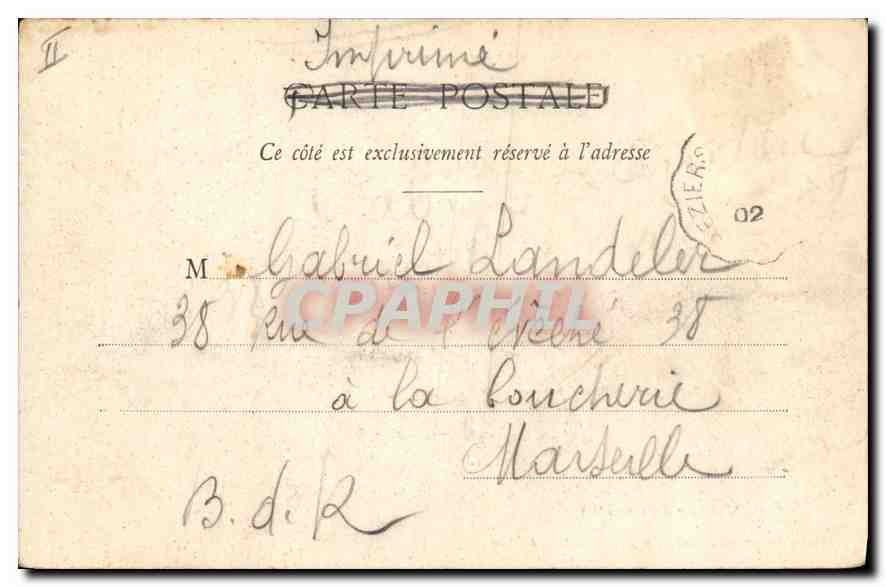 II
Imprimé
CARTE POSTALE
Ce côté est exclusivement réservé à l'adresse
EZIERS
02
M Gabriel Landeler
CPAPHIL
38 Rue de 38
à la boucherie
Marseille
B. d. R